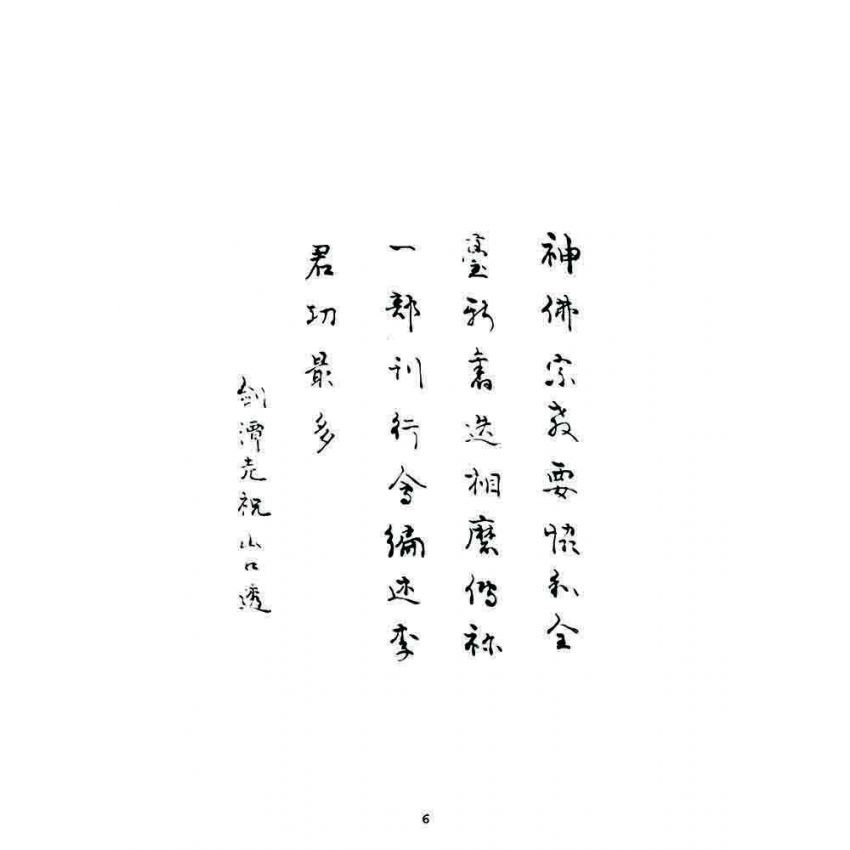 神佛宗教要協和全
臺新舊迭相磨
一部刊行會編述李
君功最多
劍潭老祝山口透
6